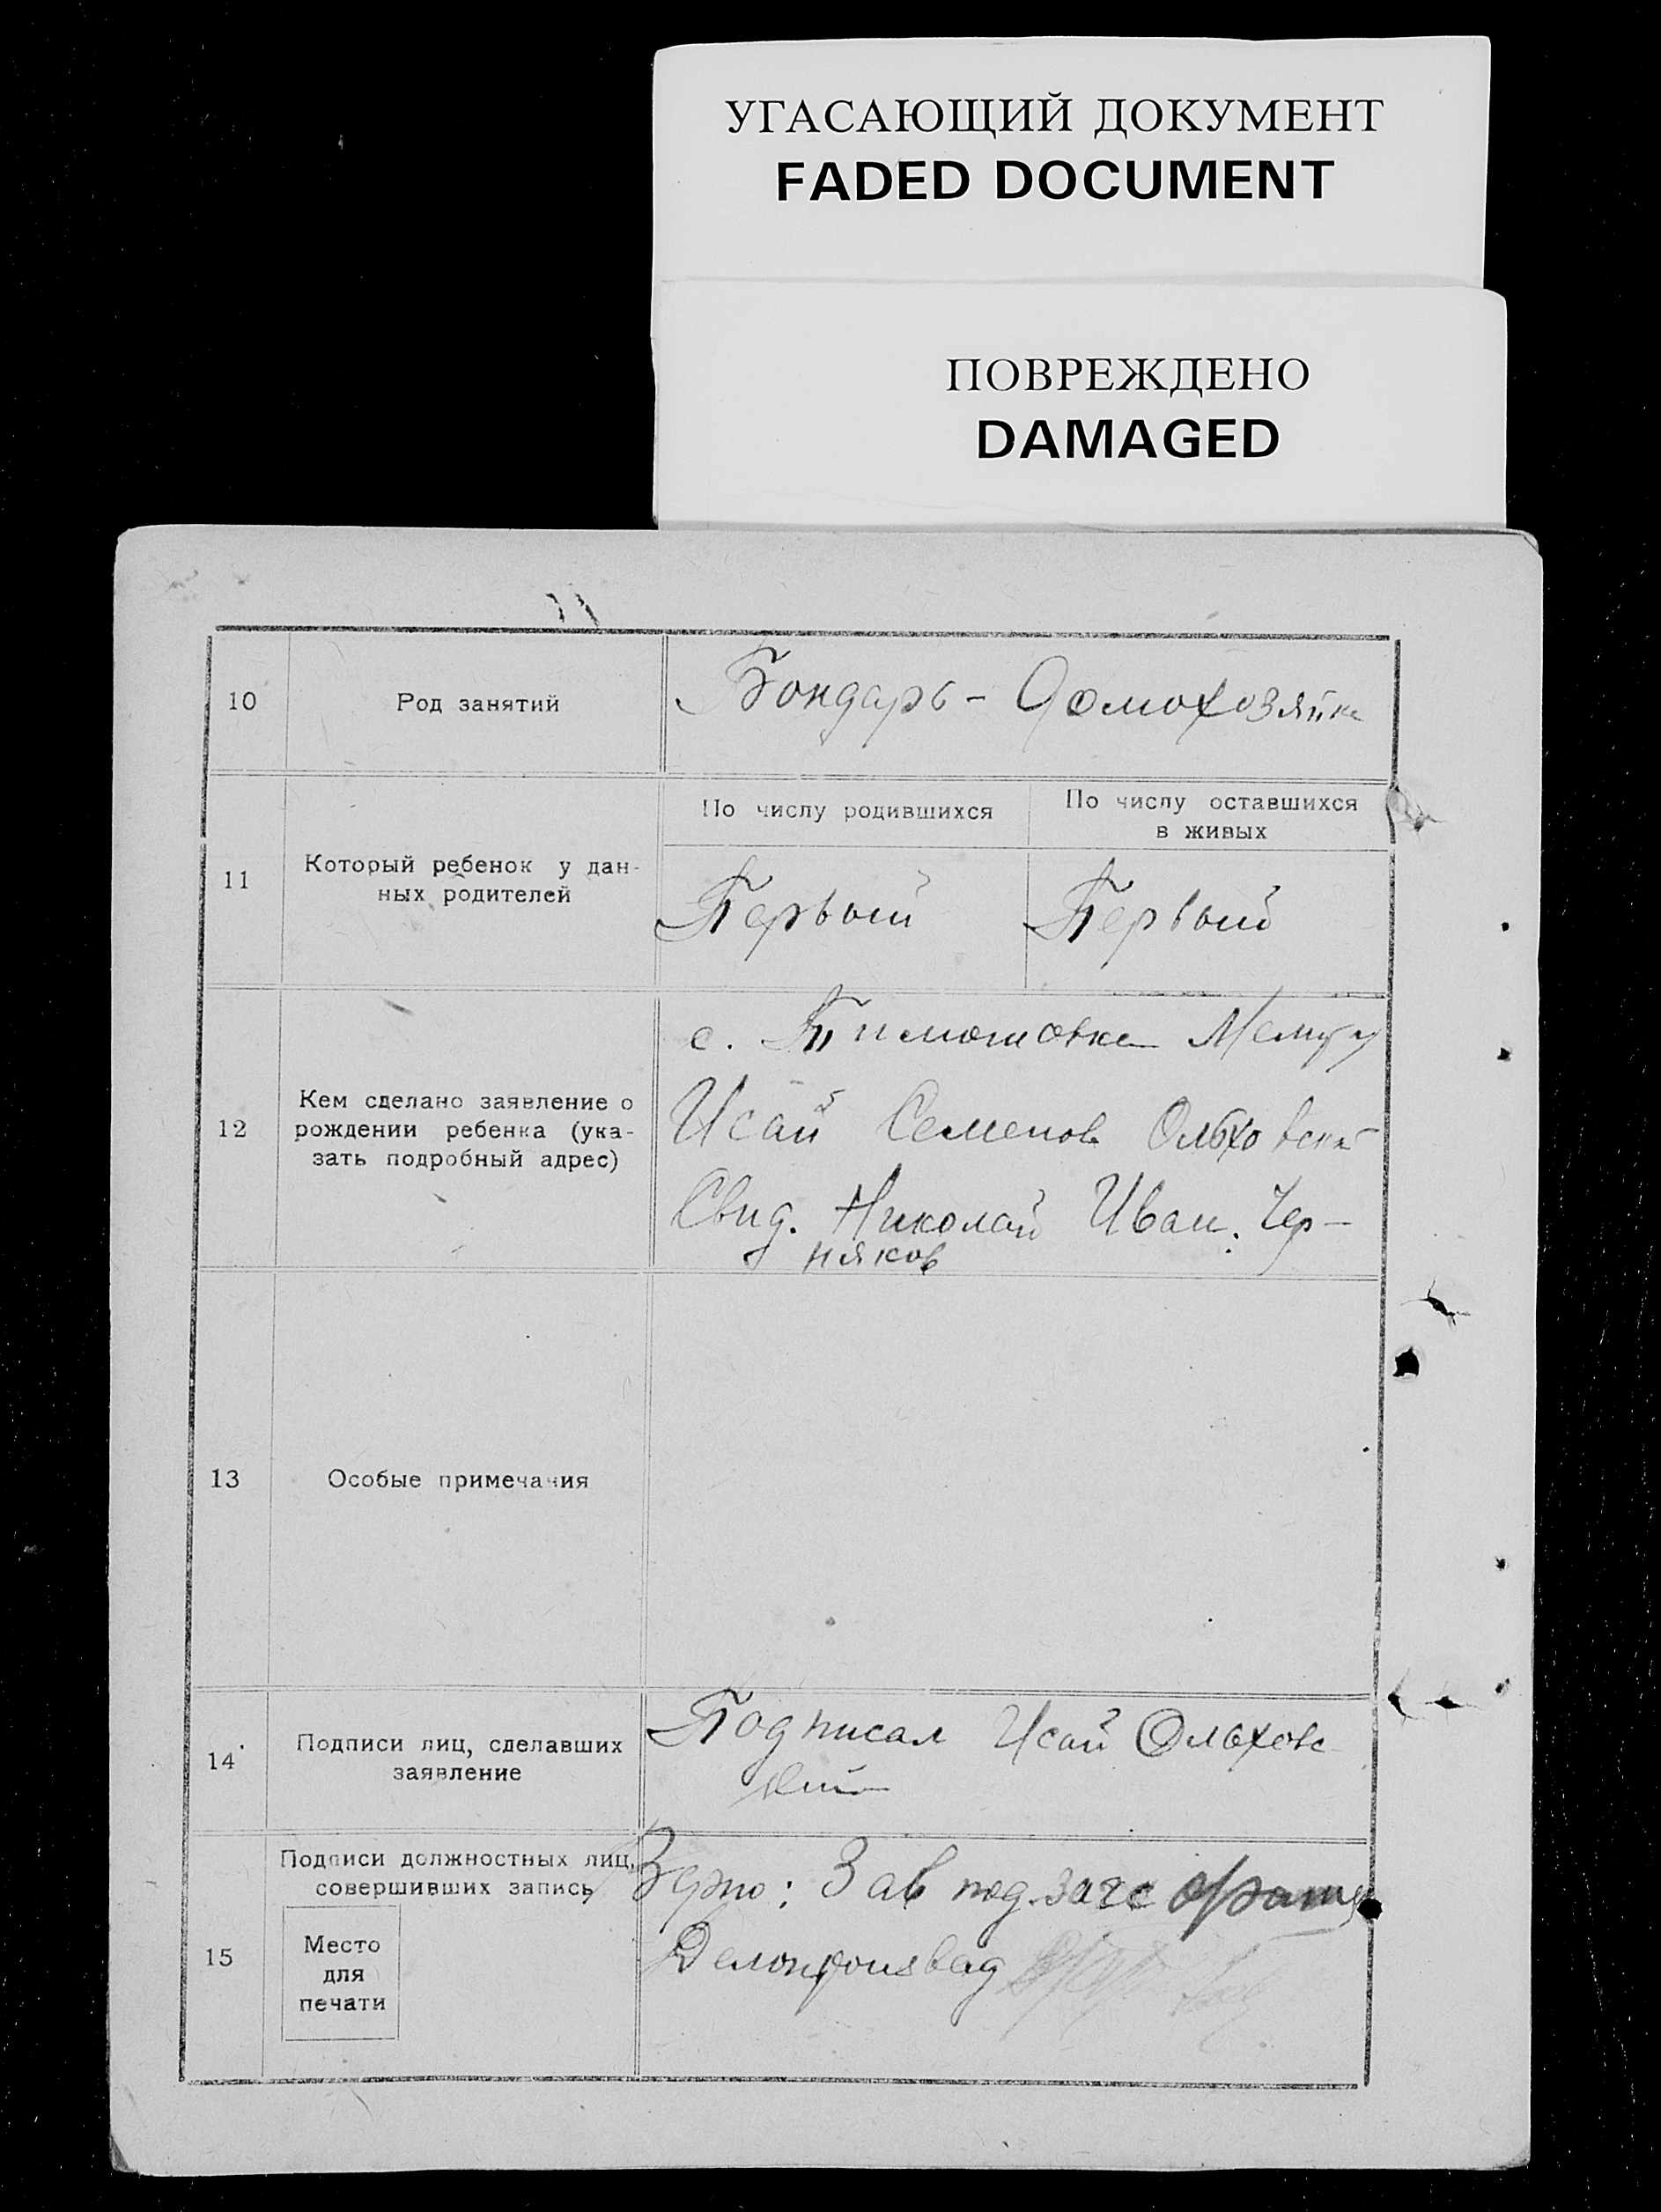 УГАСАЮЩИЙ ДОКУМЕНТ
FADED DOCUMENT
ПОВРЕЖДЕНО
DAMAGED
10
Род занятий
Бондарь - Домохозяйка
11
Который ребенок у дан-
ных родителей
По числу родившихся
Первый
По числу оставшихся
в живых
Первый
12
Кем сделано заявление о
рождении ребенка (ука-
зать подробный адрес)
с. Тимошовка
Исай Семенов Ольховский
Свид. Николай Иван. Чер-
няков
13
Особые примечания
14
Подписи лиц, сделавших
заявление
Подписал Исай Ольховс
кий
15
Подписи должностных лиц,
совершивших запись
Место
для
печати
Зав под. загс
Делопроизвод